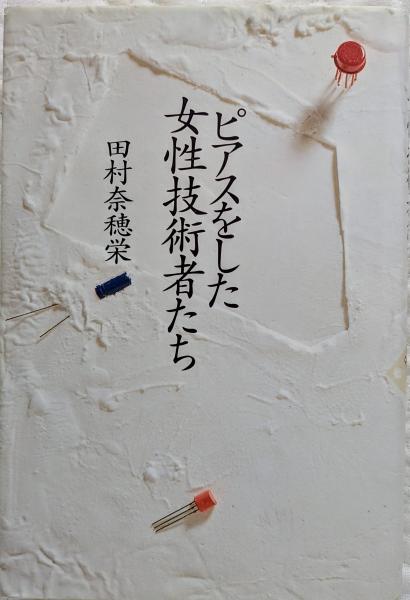 ピアスをした
女性技術者たち
田村奈穂栄